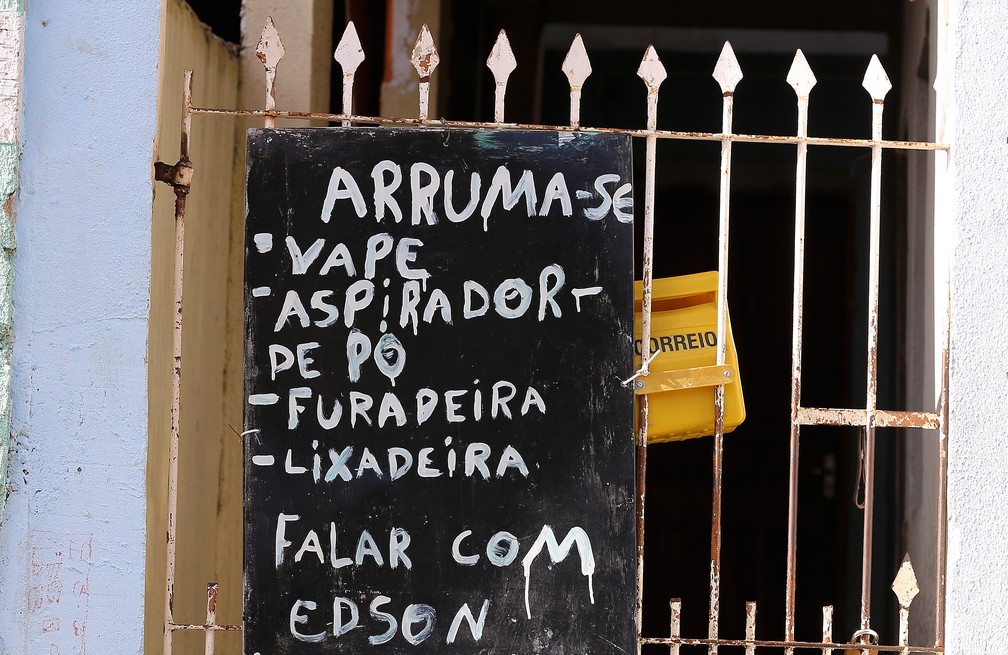 ARRUMA-SE
- VAPE
- ASPiRADOR-
DE PÓ
- FURADEiRA
- LiXADEiRA
FALAR COM
EDSON
CORREIO